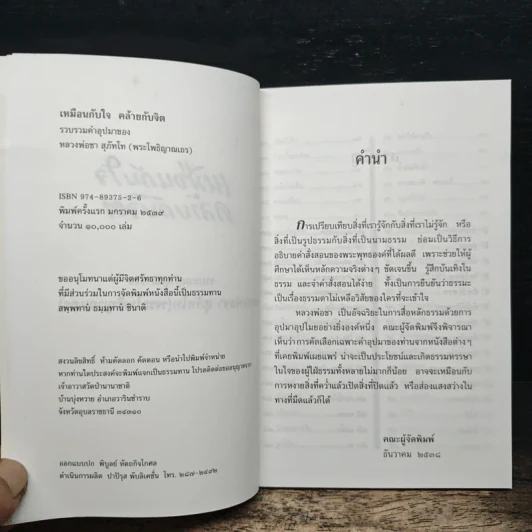 เหมือนกับใจ คล้ายกับจิต
รวบรวมคำอุปมาของ
หลวงพ่อชา สุภัทโท (พระโพธิญาณเถร)
ISBN 974-89375-2-6
พิมพ์ครั้งแรก มกราคม ๒๕๓๙
จำนวน ๑๐,๐๐๐ เล่ม
ขออนุโมทนาแด่ผู้มีจิตศรัทธาทุกท่าน
ที่มีส่วนร่วมในการจัดพิมพ์หนังสือนี้เป็นธรรมทาน
สพฺพทานํ ธมฺมทานํ ชินาติ
สงวนลิขสิทธิ์ ห้ามคัดลอก ตัดตอน หรือนำไปพิมพ์จำหน่าย
หากท่านใดประสงค์จะพิมพ์แจกเป็นธรรมทาน โปรดติดต่อขออนุญาตจาก
เจ้าอาวาสวัดป่านานาชาติ
บ้านบุ่งหวาย อำเภอวารินชำราบ
จังหวัดอุบลราชธานี ๓๔๓๑๐
ออกแบบปก พิบูลย์ หัตถกิจโกศล
ดำเนินการผลิต ปาปิรุส พับลิเคชั่น โทร.
คำนำ
การเปรียบเทียบสิ่งที่เรารู้จักกับสิ่งที่เราไม่รู้จัก หรือ
สิ่งที่เป็นรูปธรรมกับสิ่งที่เป็นนามธรรม ย่อมเป็นวิธีการ
อธิบายคำสั่งสอนของพระพุทธองค์ที่ได้ผลดี เพราะช่วยให้ผู้
ศึกษาได้เห็นหลักความจริงต่างๆ ชัดเจนขึ้น รู้สึกบันเทิงใน
ธรรม และจำคำสั่งสอนได้ง่าย ทั้งเป็นการยืนยันว่าธรรมะ
เป็นเรื่องธรรมดาไม่เหลือวิสัยของใครที่จะเข้าใจ
หลวงพ่อชา เป็นอัจฉริยะในการสื่อหลักธรรมด้วยการ
อุปมาอุปไมยอย่างยิ่งองค์หนึ่ง คณะผู้จัดพิมพ์จึงพิจารณา
เห็นว่าการคัดเลือกเฉพาะคำอุปมาของท่านจากหนังสือต่างๆ
ที่เคยพิมพ์เผยแพร่ น่าจะเป็นประโยชน์และเกิดธรรมหรรษา
ในใจของผู้ใฝ่ธรรมทั้งหลายไม่มากก็น้อย อาจจะเหมือนกับ
การหงายสิ่งที่คว่ำแล้วเปิดสิ่งที่ปิดแล้ว หรือส่องแสงสว่างใน
ทางที่มืดแล้วก็ได้
คณะผู้จัดพิมพ์
ธันวาคม ๒๕๓๘